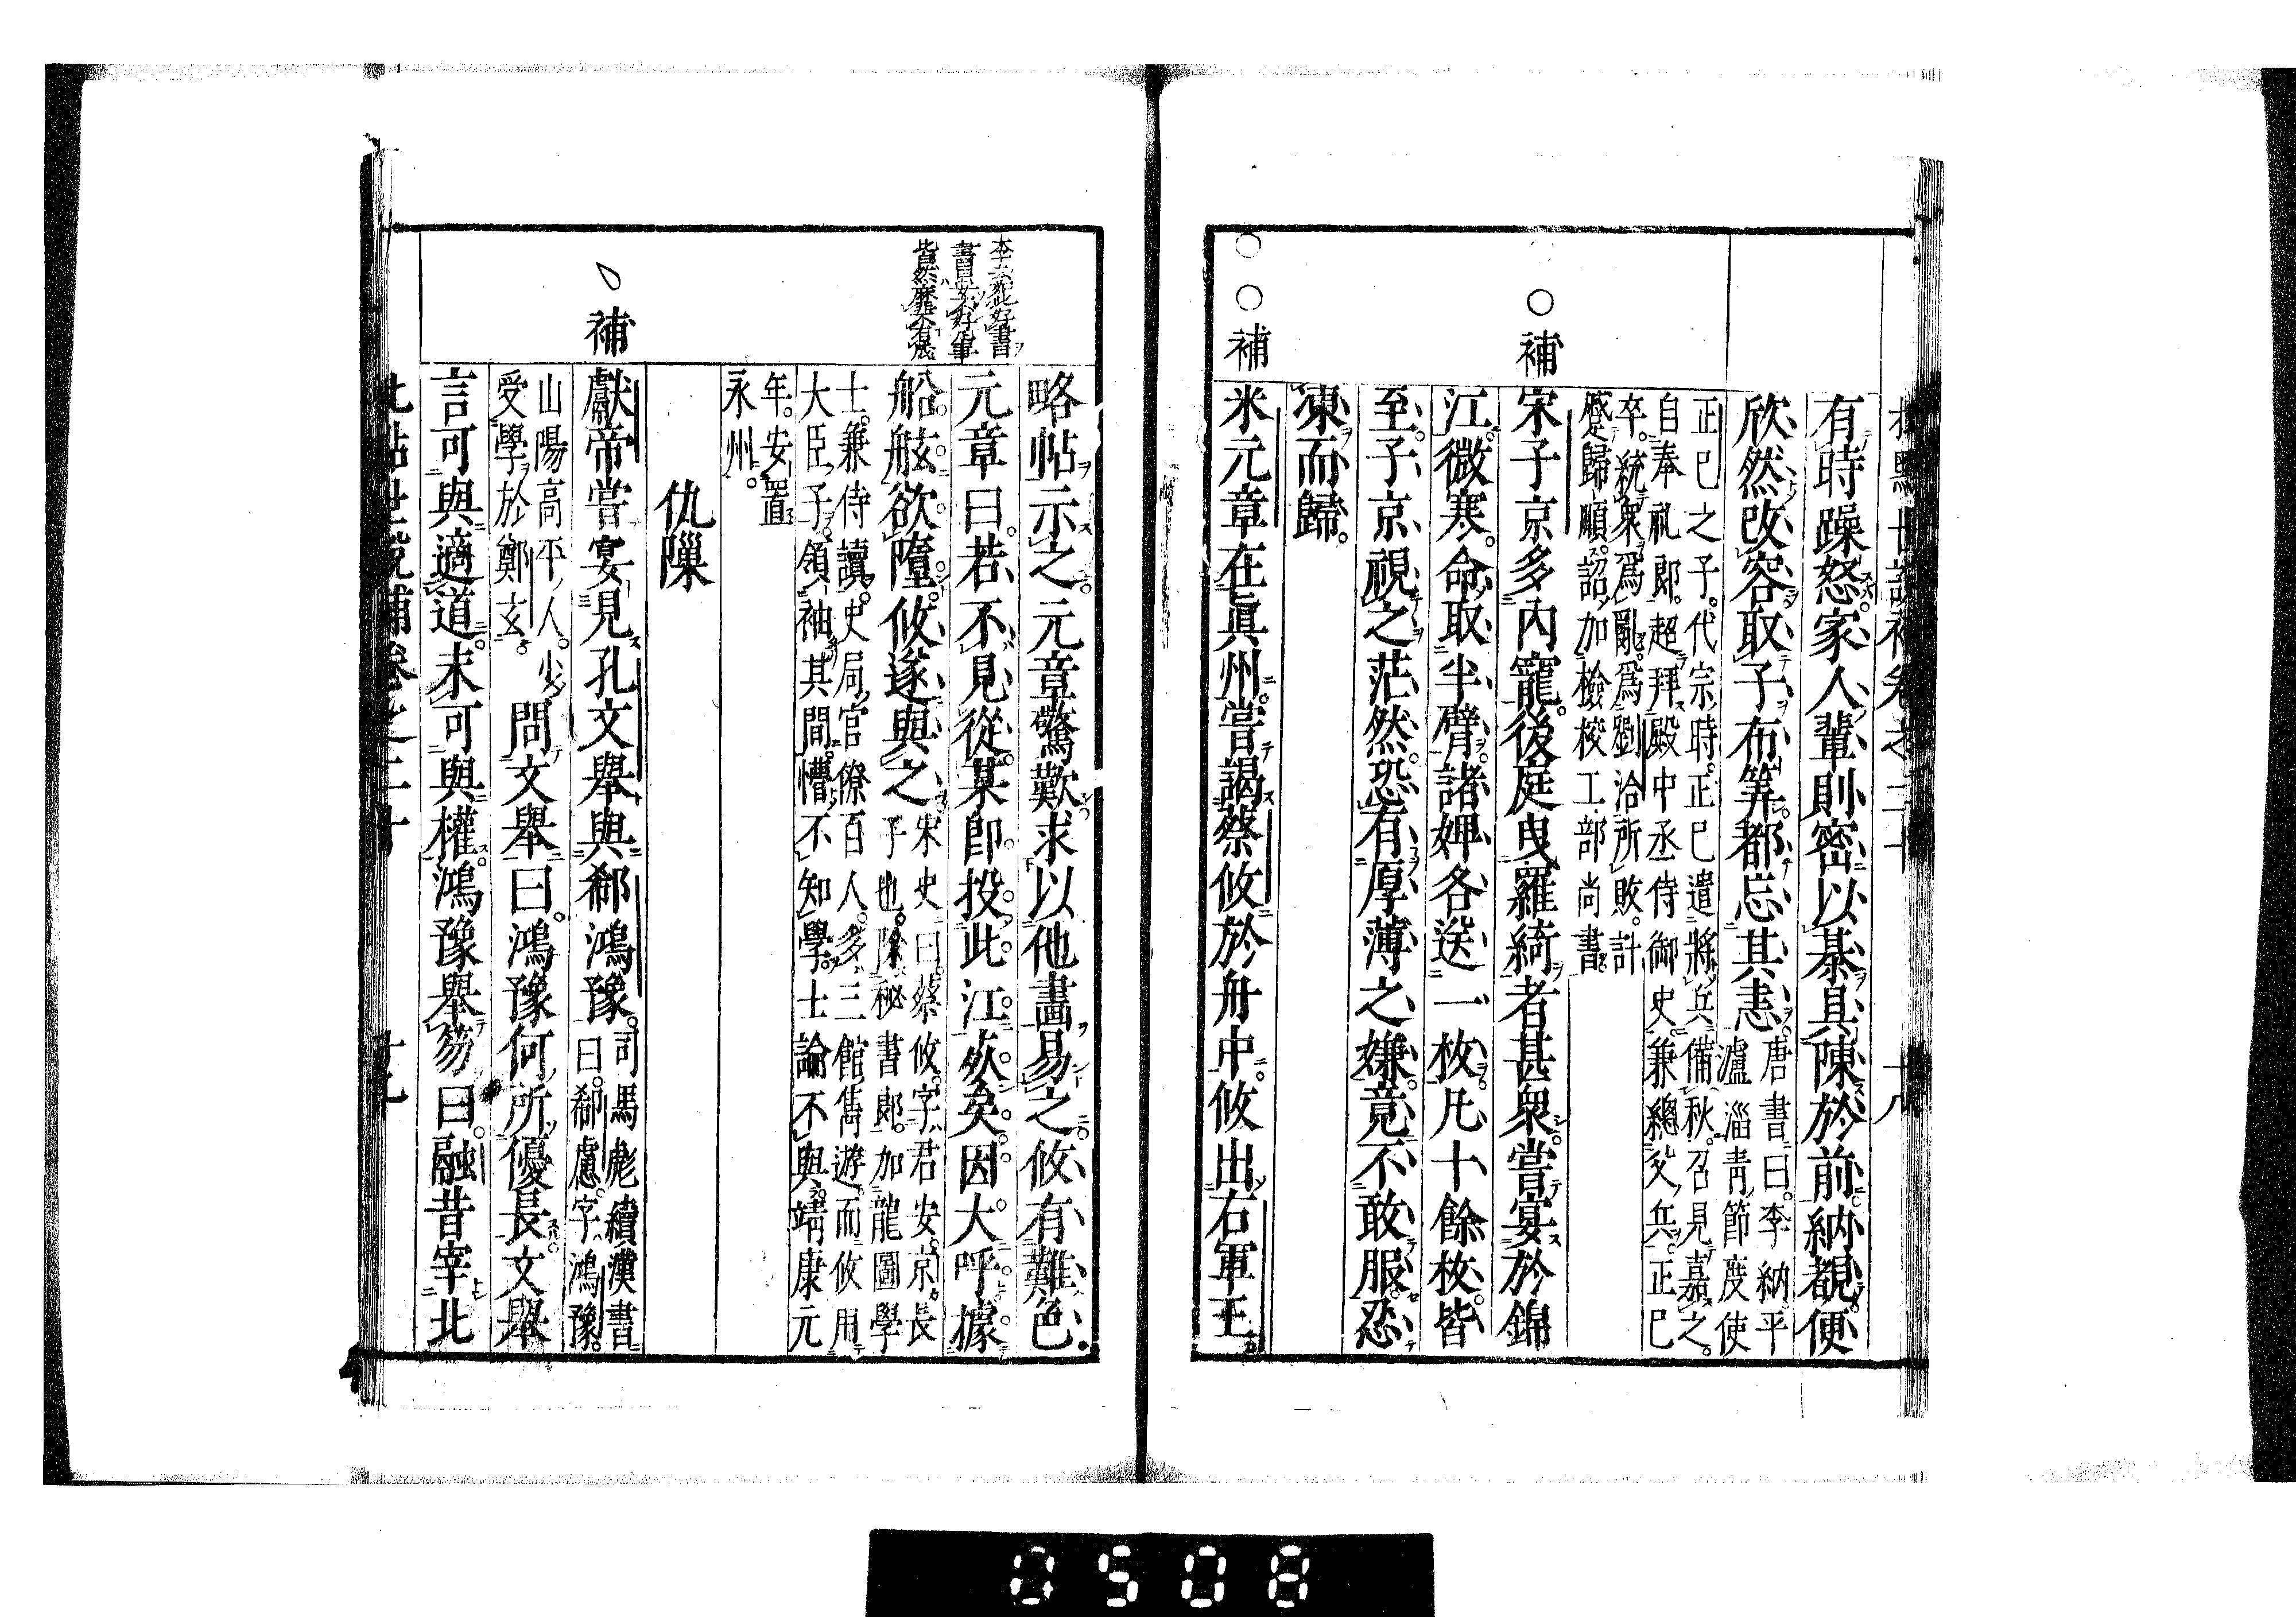 批點世說補卷之二十 十八
有時躁怒家人輩則密以棊具陳於前納覩便
欣然改容取子布筭都忘其恚唐書曰李納平
盧淄靑節度使
正巳之子代宗時正巳遣將兵備秋召見嘉之
自奉礼郎超拜殿中丞侍御史兼總父兵正巳
卒統衆爲亂爲劉洽所敗計
蹙歸順詔加檢校工部尚書
補
宋子京多內寵後庭曳羅綺者甚衆嘗宴於錦
江微寒命取半臂諸婢各送一枚凡十餘枚皆
至子京視之茫然恐有厚薄之嫌竟不敢服忍
凍而歸
補
米元章在眞州嘗謁蔡攸於舟中攸出右軍王
略帖示之元章驚歎求以他畵易之攸有難色
元章曰若不見從某卽投此江死矣因大呼據
船舷欲墮攸遂與之宋史曰蔡攸字君安京長
子也除秘書郎加龍圖學
士兼侍讀史局官僚百人多三館雋遊而攸用
大臣子領袖其間懵不知學士論不與靖康元
年安置
永州
仇隟
補
獻帝嘗宴見孔文舉與郗鴻豫司馬彪續漢書
曰郗慮字鴻豫
山陽高平人少
受學於鄭玄
問文舉曰鴻豫何所優長文舉
言可與適道未可與權鴻豫舉笏曰融昔宰北
批點世說補卷之二十